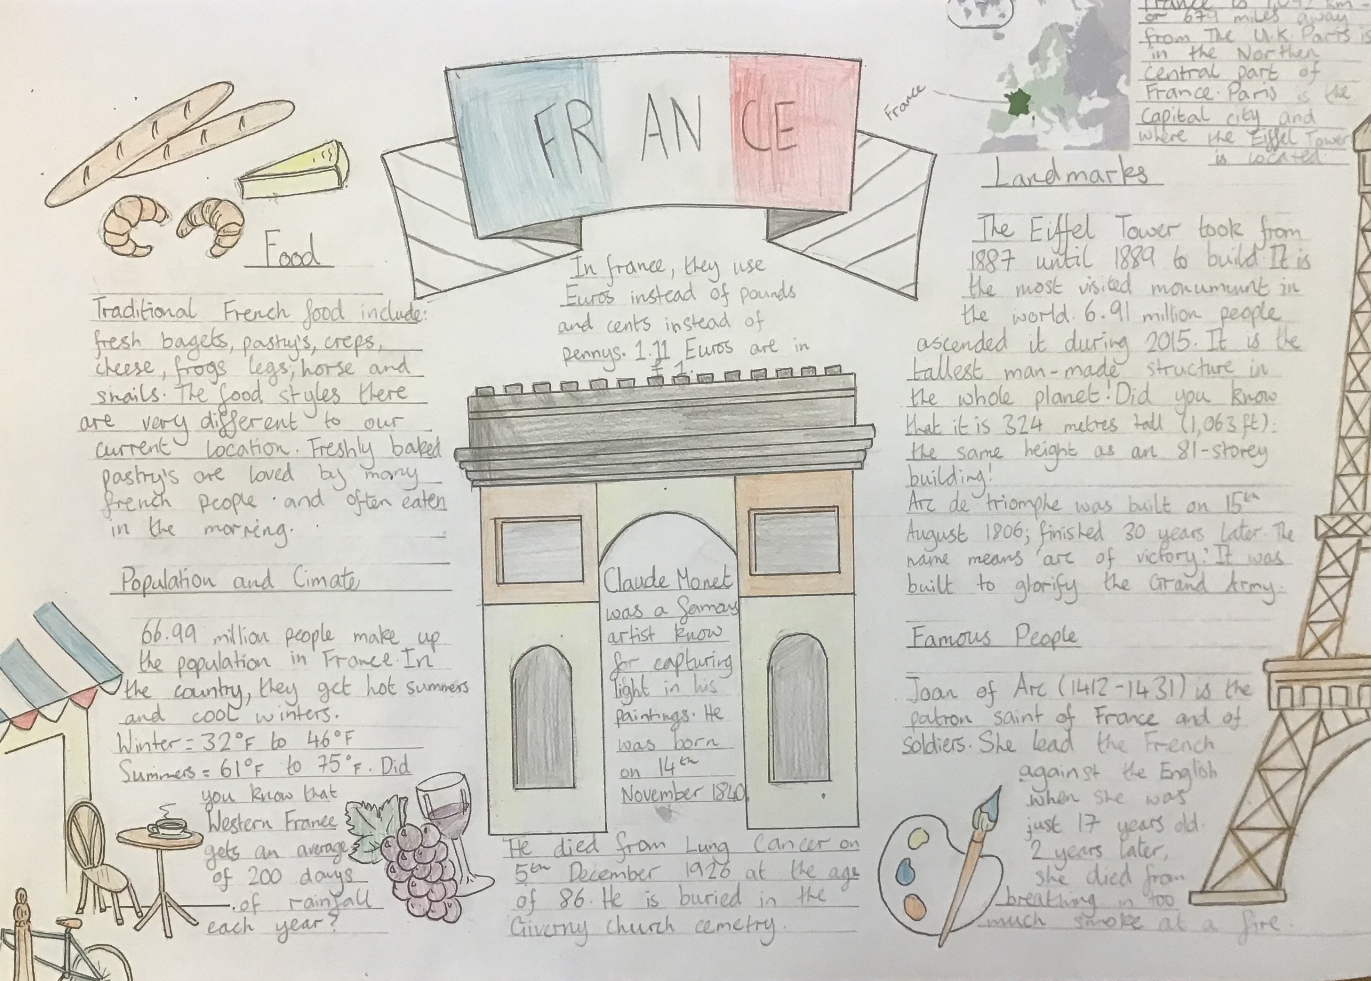 FRANCE
France
France is 1,092 km
or 679 miles away
from The U.K. Paris is
in the Northen
central part of
France. Paris is the
capital city and
where the Eiffel Tower
is located.
Food
Traditional French food include:
fresh bagets, pastry's, creps,
cheese, frogs legs, horse and
snails. The food styles there
are very different to our
current location. Freshly baked
pastry's are loved by many
french people and often eaten
in the morning.
Population and Cimate
66.99 million people make up
the population in France. In
the country, they get hot summers
and cool winters.
Winter = 32°F to 46°F
Summers = 61°F to 75°F. Did
you know that
Western France
gets an average
of 200 days
of rainfall
each year?
In france, they use
Euros instead of pounds
and cents instead of
pennys. 1.11 Euros are in
£1.
Claude Monet
was a famous
artist know
for capturing
light in his
paintings. He
was born
on 14th
November 1840
He died from Lung Cancer on
5th December 1926 at the age
of 86. He is buried in the
Giverny church cemetry.
Landmarks
The Eiffel Tower took from
1887 until 1889 to build. It is
the most visited monumunt in
the world. 6.91 million people
ascended it during 2015. It is the
tallest man-made structure in
the whole planet! Did you know
that it is 324 metres tall (1,063ft):
the same height as an 81-storey
building!
Arc de triomphe was built on 15th
August 1806; finished 30 years later. The
name means 'arc of victory'. It was
built to glorify the Grand Army.
Famous People
Joan of Arc (1412-1431) is the
patron saint of France and of
soldiers. She lead the French
against the English
when she was
just 17 years old.
2 years later,
she died from
breathing in too
much smoke at a fire.